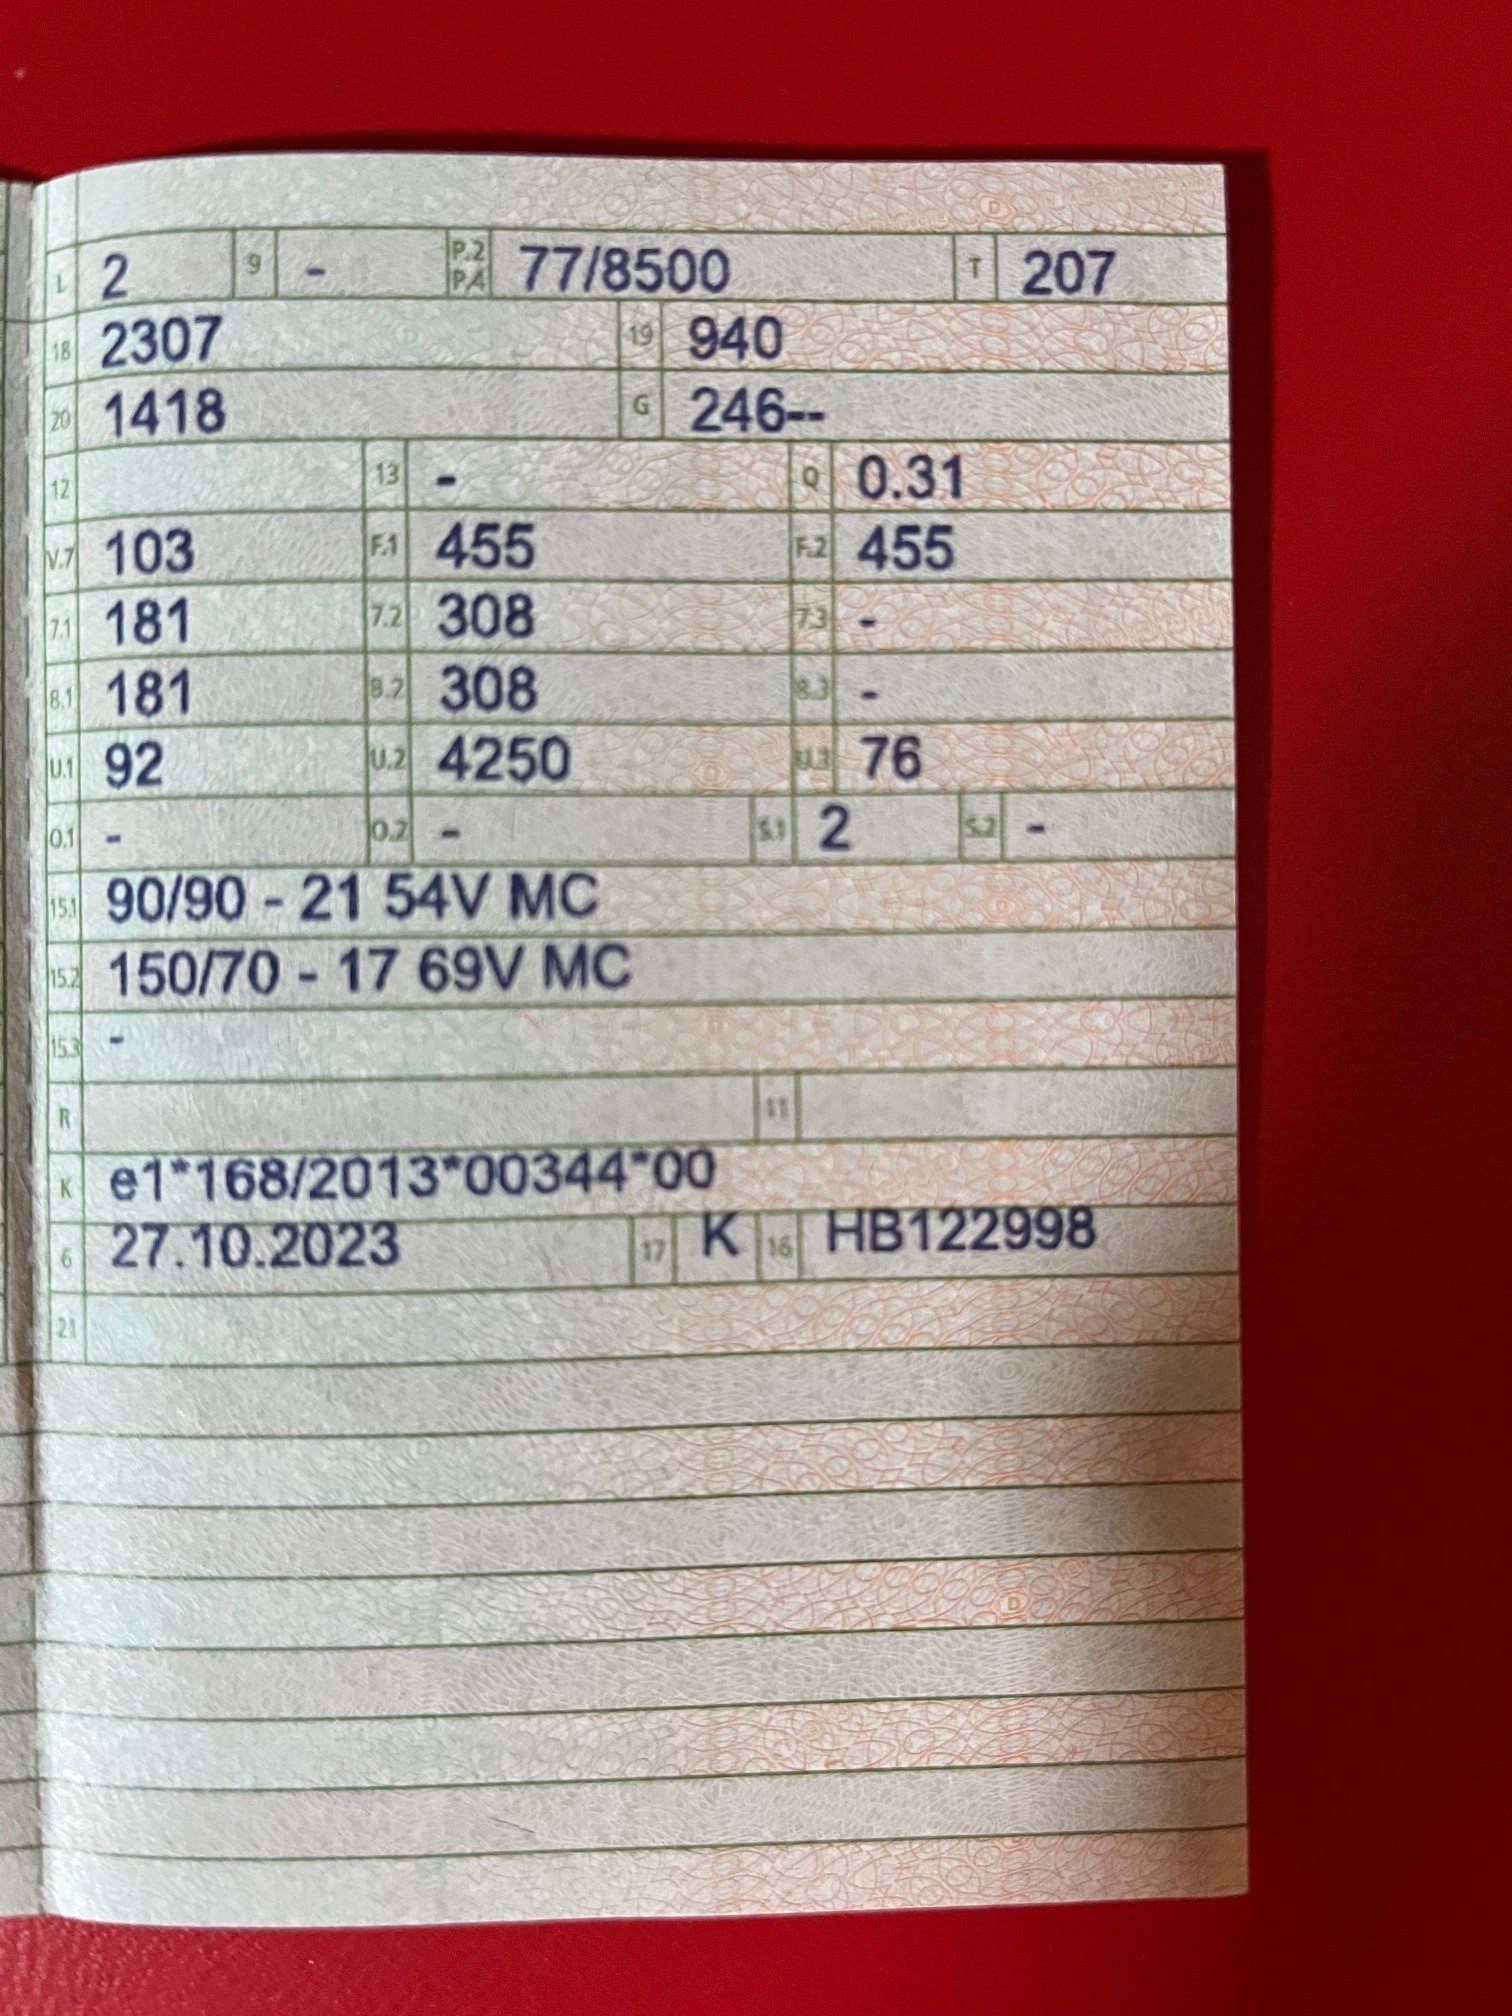 L 2 9 - P.2 P.4 77/8500 T 207
18 2307 19 940
20 1418 G 246--
12 13 - Q 0.31
V.7 103 F.1 455 F.2 455
7.1 181 7.2 308 7.3 -
8.1 181 8.2 308 8.3 -
U.1 92 U.2 4250 U.3 76
O.1 - O.2 - S.1 2 S.2 -
15.1 90/90 - 21 54V MC
15.2 150/70 - 17 69V MC
15.3 -
R 11
K e1*168/2013*00344*00
6 27.10.2023 17 K 16 HB122998
21